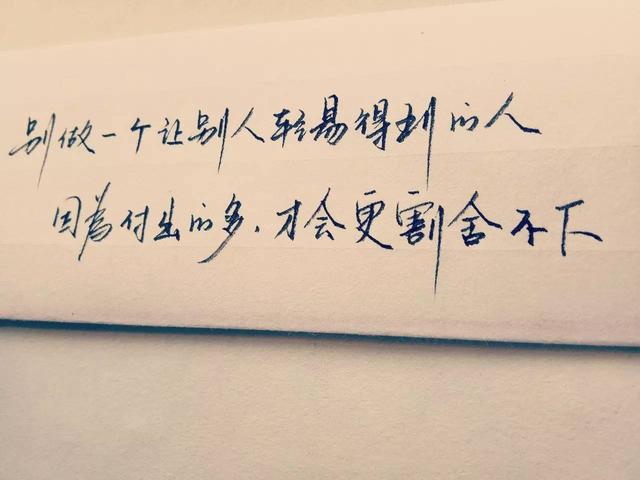 别做一个让别人轻易得到的人
因為付出的多,才会更割舍不下